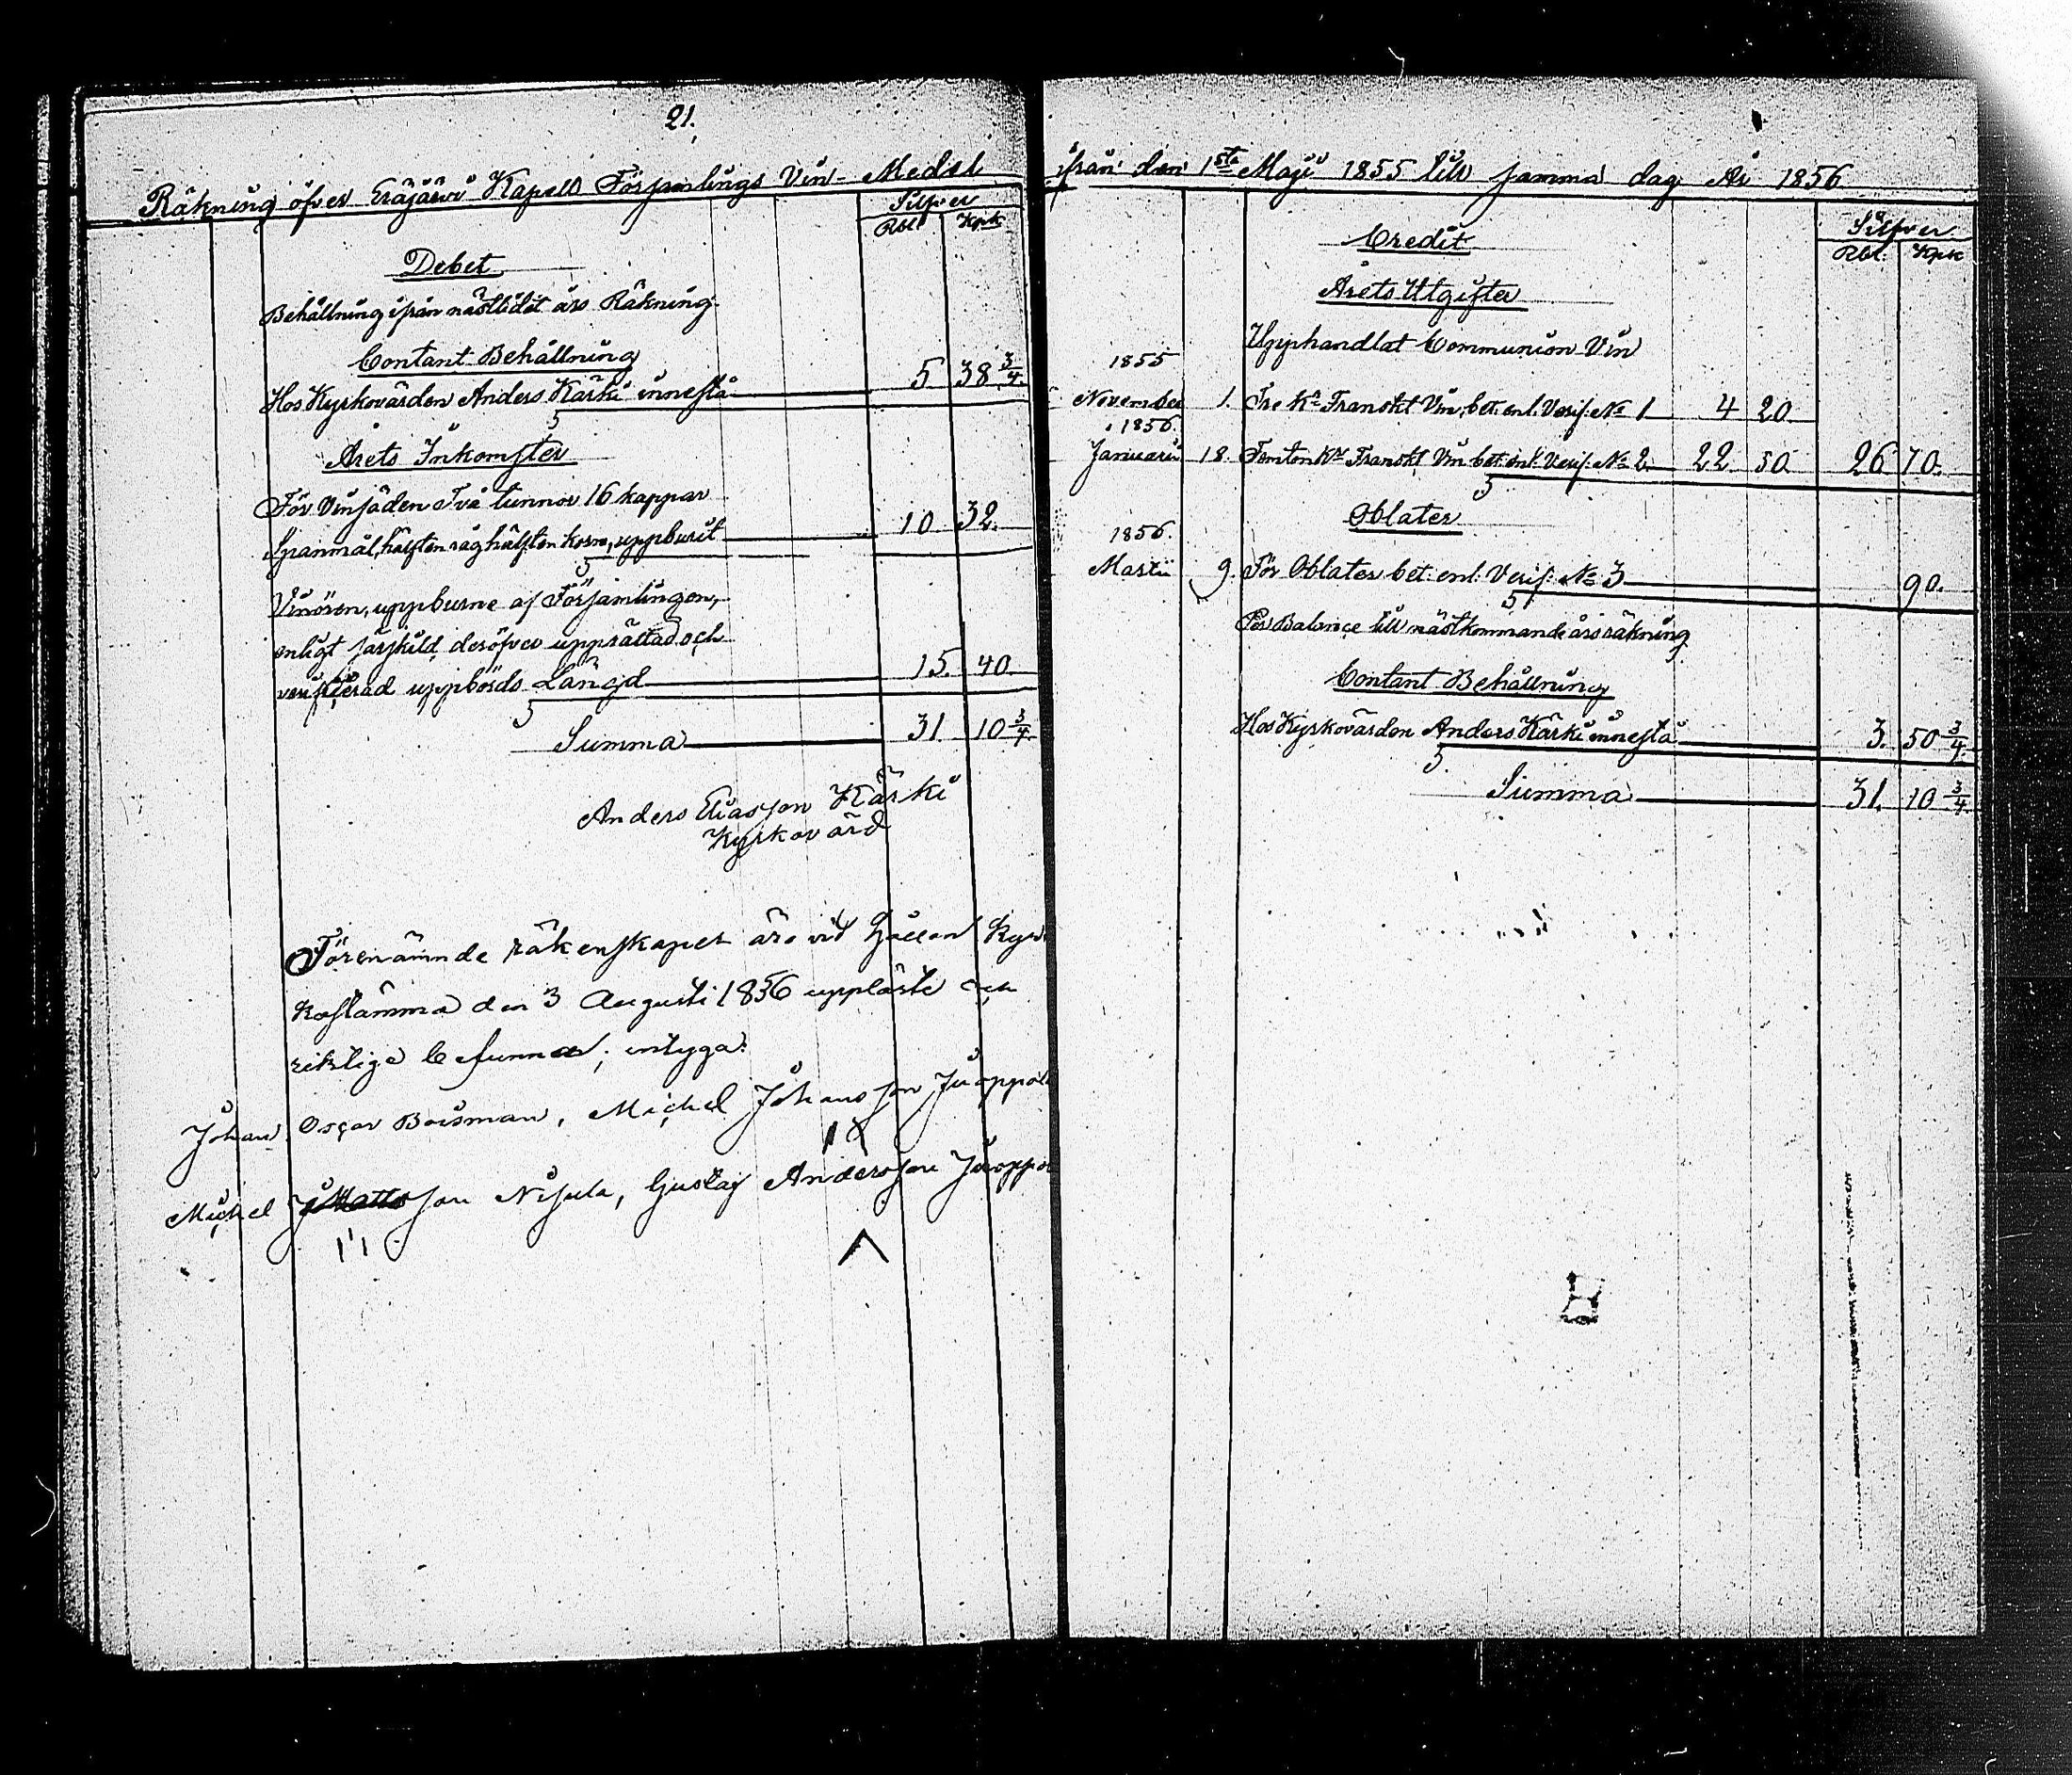 21.
Räkning öfver Eräjärvi Kapells Församlings Vin-Medel
Silfver
Rbl Kpk
Debet
Behållning ifrån nästlidit års Räkning
Contant Behållning
Hos Kyrkovärden Anders Kärki innestå 5 38 3/4.
Årets Inkomster
För Vinsäden Två tunnor 16 kappar
Spanmål, hälften råg hälften korn, uppburit 10 32.
Vinören, uppburne af Församlingen,
enligt särskild, deröfver upprättad och
verificerad uppbörds Längd 15. 40.
Summa 31 10 3/4.
Anders Eliasson Kärki
Kyrkovärd
Förenämnde räkenskaper äro vid hållen Kyr
kostämma den 3 Augusti 1856 uppläste och
riktige befunna; intyga:
Johan Oscar Boisman, Michel Johansson Juoppol
Michel Mattsson Nisula, Gustaf Andersson Juoppo
ifrån den 1sta Maji 1855 till samma dag År 1856
Silfver
Rbl. Kpk
Credit
Årets Utgifter
Upphandlat Communion Vin
1855
November 1. Tre Kr Franskt Vin, bet. enl. Verif. No 1 4 20
1856.
Januarii 18. Femton Kr Franskt Vin bet. enl. Verif. No 2. 22 50. 26 70.
Oblater
1856.
Martii 9. För Oblater bet. enl. Verif. No 3 90.
Per Balance till nästkommande års räkning
Contant Behållning
Hos Kyrkovärden Anders Kärki innestå 3. 50 3/4.
Summa 31. 10 3/4.